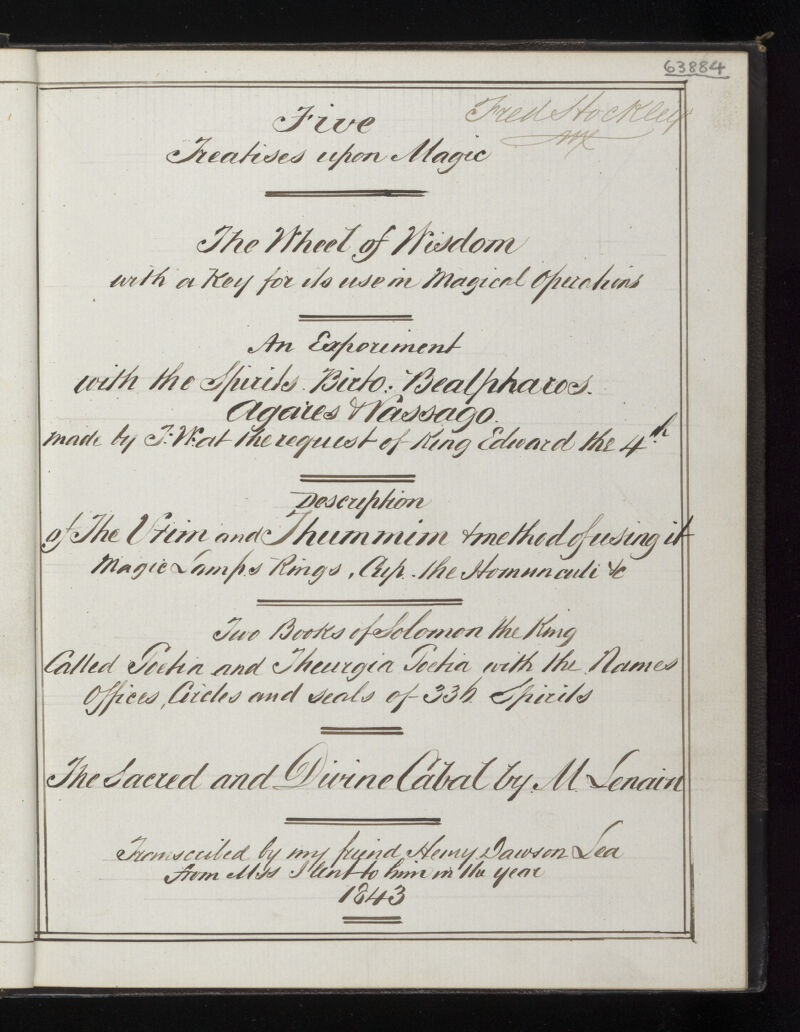 63884
Fred Hockley
Five
Treatises upon Magic
The Wheel of Wisdom
with a Key for its use in Magical Operations
An Experiment
with the Spirits. Birto. Bealphares.
Agares & Vassago.
made by T. W. at the request of King Edward the 4th.
Description
of The Urim and Thummim & method of using it
Magic Lamps Rings, Cup. the Homunculi &c
Two Books of Solomon the King
Called Goetia and Theurgia Goetia with the Names
Offices, Circles and seals of 336 Spirits
The Sacred and Divine Cabal by M. Lenain
Transcribed by my friend Henry Dawson Lea
from Mss I lent to him in the year
1843